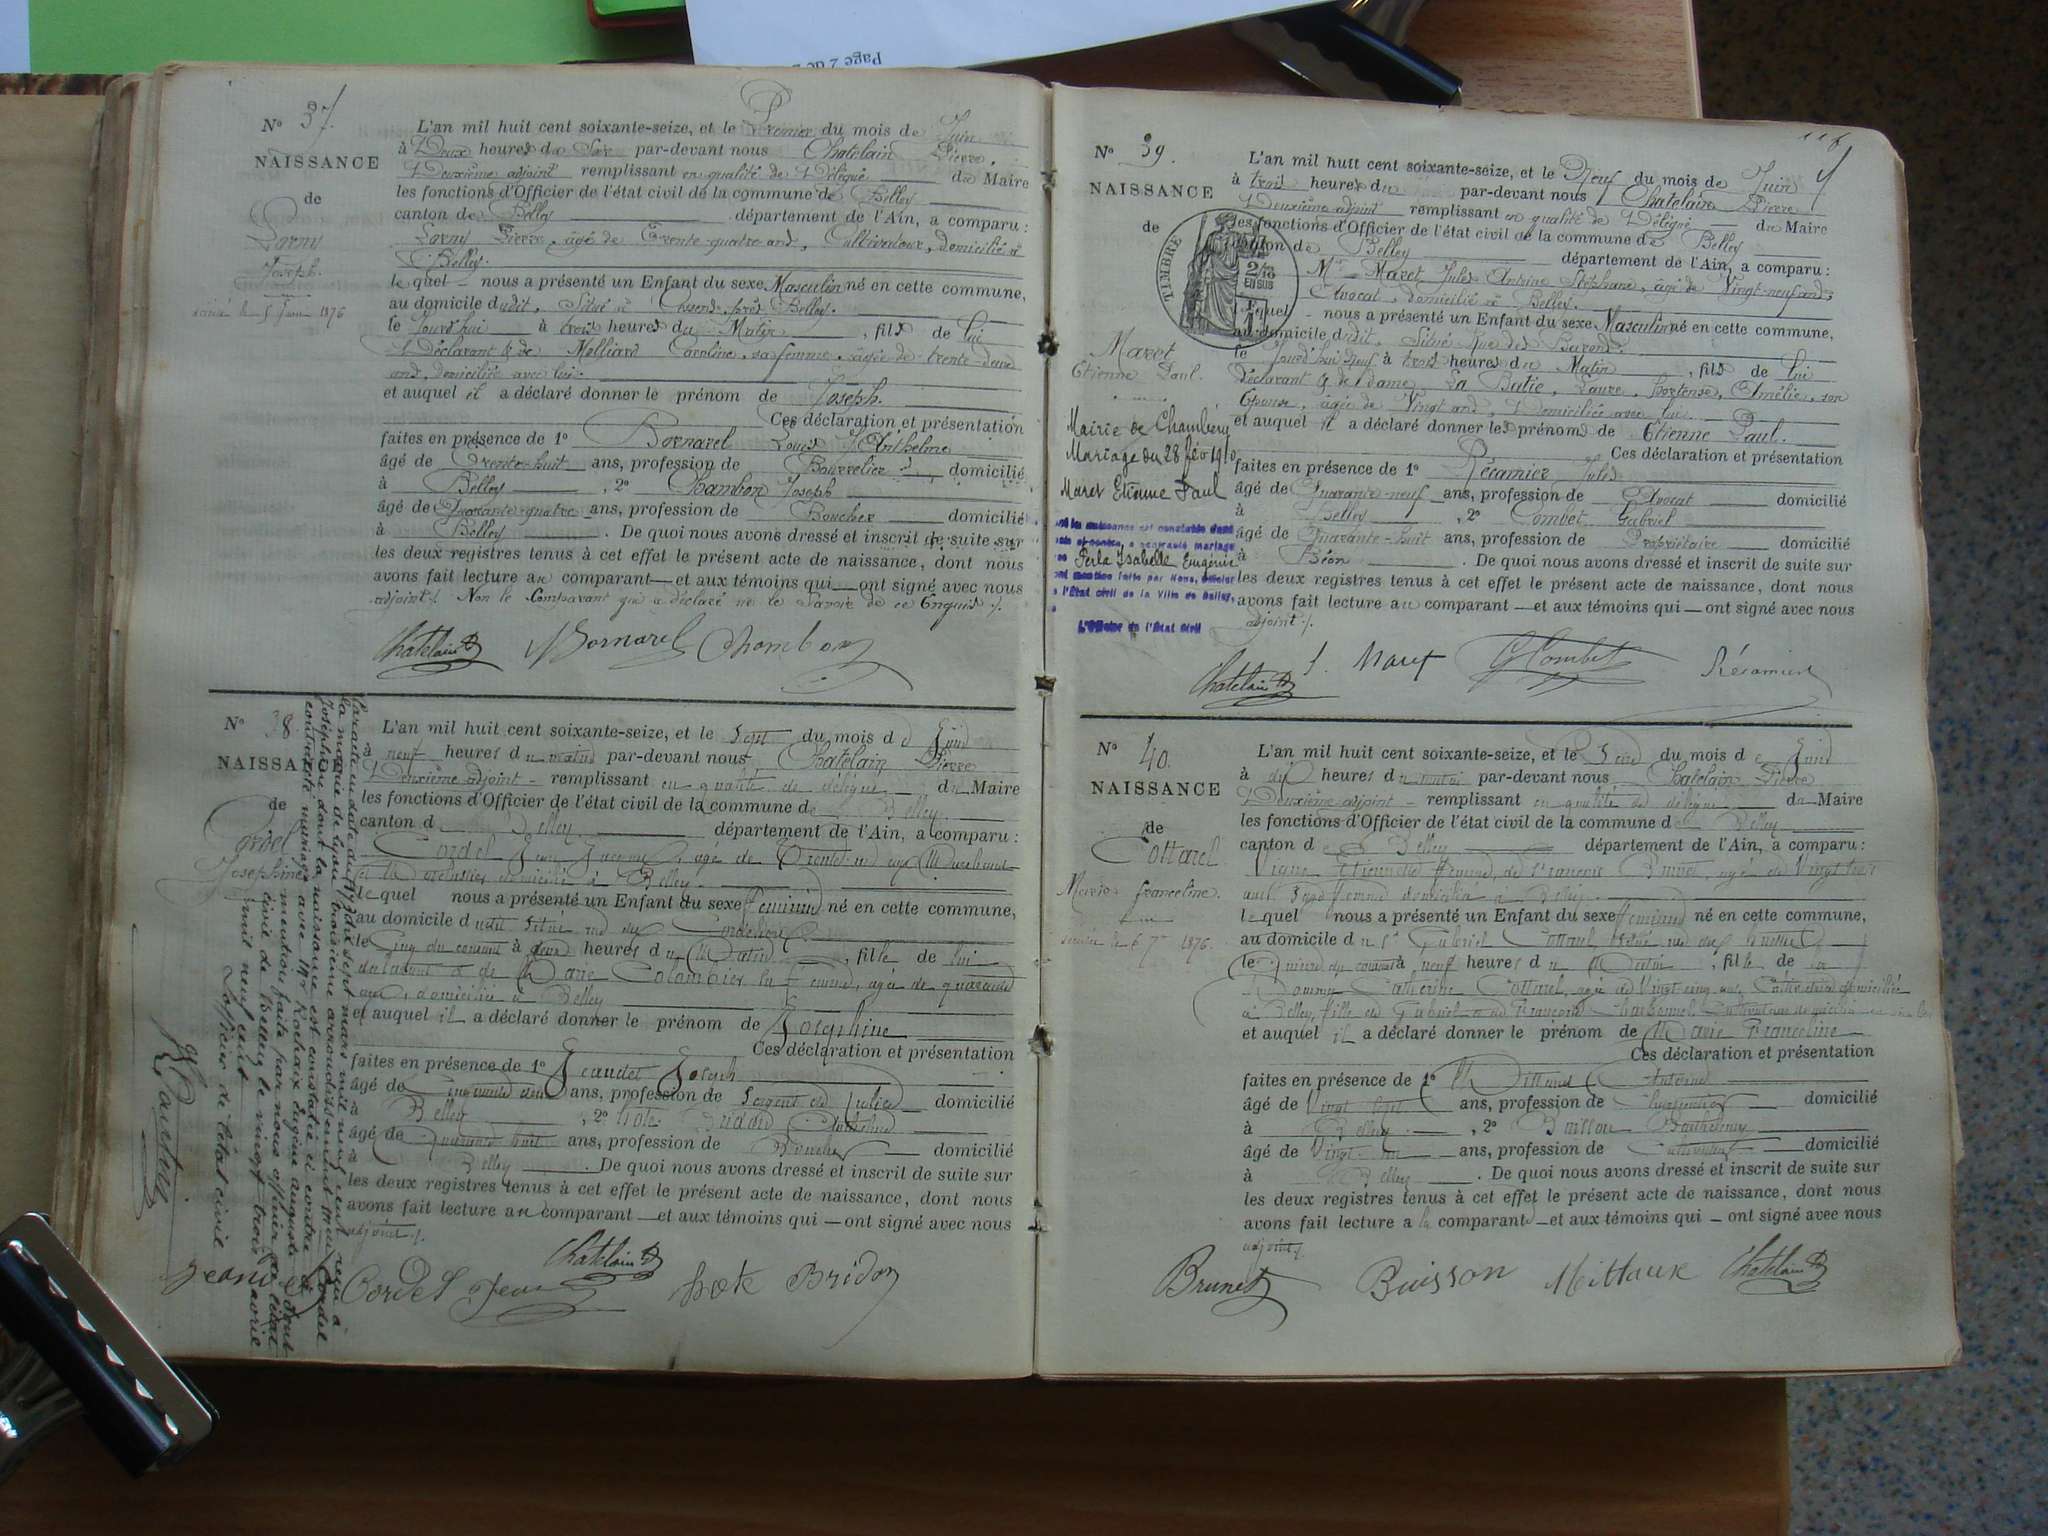 Page 2 de
N° 37.
NAISSANCE
de
Lorny
Joseph.
1876
L'an mil huit cent soixante-seize, et le Premier du mois de Juin
à Deux heures du Soir par-devant nous Chatelain Pierre,
Deuxième adjoint remplissant en qualité de Délégué du Maire
les fonctions d'Officier de l'état civil de la commune de Belley
canton de Belley département de l'Ain, a comparu :
Lorny Pierre, âgé de Trente-quatre ans, Cultivateur, domicilié à
Belley.
le quel nous a présenté un Enfant du sexe Masculin né en cette commune,
au domicile dudit, Situé à près Belley.
le Jourd'hui à trois heures du Matin, fils de lui
Déclarant & de Molliard Caroline, sa femme, âgée de trente-deux
ans, domiciliée avec lui.
et auquel il a déclaré donner le prénom de Joseph.
Ces déclaration et présentation
faites en présence de 1° Bornarel Louis Anthelme
âgé de Trente-huit ans, profession de Bourrelier domicilié
à Belley, 2° Chambon Joseph
âgé de Quarante-quatre ans, profession de Boucher domicilié
à Belley. De quoi nous avons dressé et inscrit de suite sur
les deux registres tenus à cet effet le présent acte de naissance, dont nous
avons fait lecture au comparant et aux témoins qui ont signé avec nous
adjoint. Non le Comparant qui a déclaré ne le Savoir de ce Enquis.
Chatelain Bornarel Chambon
N° 38
NAISSANCE
de
Cordel
Joséphine
Par acte en date du dix sept mars mil neuf cent reçu à
la mairie de Lyon troisième arrondissement Mlle Cordel
Joséphine dont la naissance est constatée ci contre a
contracté mariage avec Mr Rochaix Eugène Auguste Dont
mention faite par nous officier de l'état
civil de Belley le vingt trois avril
mil neuf cent
L'officier de l'état civil
L'an mil huit cent soixante-seize, et le Sept du mois de Juin
à neuf heures du matin par-devant nous Chatelain Pierre
Deuxième adjoint remplissant en qualité de délégué du Maire
les fonctions d'Officier de l'état civil de la commune de Belley
canton de Belley département de l'Ain, a comparu :
Cordel Jean âgé de Trente
domicilié à Belley.
le quel nous a présenté un Enfant du sexe féminin né en cette commune,
au domicile dudit situé rue des Cordeliers
le Cinq du courant à deux heures du Matin, fille de lui
déclarant & de Marie Colombier sa femme, âgée de quarante
ans, domiciliée à Belley
et auquel il a déclaré donner le prénom de Joséphine
Ces déclaration et présentation
faites en présence de 1° Jeandet Joseph
âgé de Cinquante deux ans, profession de Sergent de Police domicilié
à Belley, 2° hote Bridon
âgé de Quarante huit ans, profession de domicilié
à Belley. De quoi nous avons dressé et inscrit de suite sur
les deux registres tenus à cet effet le présent acte de naissance, dont nous
avons fait lecture au comparant et aux témoins qui ont signé avec nous
adjoint.
Jeandet Cordel Jean Chatelain hote Bridon
N° 39.
NAISSANCE
de
TIMBRE
2/10
EN SUS
Maret
Etienne Paul.
Mairie de Chambéry
Mariage du 28 fév 1910
Maret Etienne Paul
dont la naissance est constatée dans
contre, a contracté mariage
Perle Isabelle Eugénie
dont mention faite par Nous, Officier
de l'État civil de la Ville de Belley,
L'Officier de l'État Civil
L'an mil huit cent soixante-seize, et le Neuf du mois de Juin
à trois heures du par-devant nous Chatelain Pierre
Deuxième adjoint remplissant en qualité de Délégué du Maire
les fonctions d'Officier de l'état civil de la commune de Belley
canton de Belley département de l'Ain, a comparu :
Mr Maret Jules Antoine Stéphane, âgé de Vingt-neuf ans,
Avocat, domicilié à Belley.
lequel nous a présenté un Enfant du sexe Masculin né en cette commune,
au domicile dudit, Situé Rue des Barons.
le Jourd'hui neuf à trois heures du Matin, fils de lui
déclarant & de dame, La Batie, Laure, hortense, Amélie, son
Epouse, âgée de Vingt ans, Domiciliée avec lui
et auquel il a déclaré donner les prénoms de Etienne Paul.
Ces déclaration et présentation
faites en présence de 1° Récamier Jules
âgé de Quarante-neuf ans, profession de Avocat domicilié
à Belley, 2° Combet Gabriel
âgé de Quarante-huit ans, profession de Propriétaire domicilié
à Béon. De quoi nous avons dressé et inscrit de suite sur
les deux registres tenus à cet effet le présent acte de naissance, dont nous
avons fait lecture au comparant et aux témoins qui ont signé avec nous
adjoint.
Chatelain J. Maret G Combet Récamier
N° 40.
NAISSANCE
de
Cottarel
Marie Franceline.
décédée le 6 7re 1876.
L'an mil huit cent soixante-seize, et le du mois de Juin
à dix heures du matin par-devant nous Chatelain Pierre
Deuxième adjoint remplissant en qualité de délégué du Maire
les fonctions d'Officier de l'état civil de la commune de Belley
canton de Belley département de l'Ain, a comparu :
Vigne Etiennette femme de François Brunet, agée de Vingt
ans, Sage femme domiciliée à Belley.
le quel nous a présenté un Enfant du sexe féminin né en cette commune,
au domicile du Sr Gabriel Cottarel,
le du courant à neuf heures du Matin, fille de la
Catherine Cottarel, agée de Vingt cinq ans, domiciliée
à Belley, fille de Gabriel & de Françoise Charbonnel
et auquel il a déclaré donner le prénom de Marie Franceline
Ces déclaration et présentation
faites en présence de 1° Mittaux Antoine
âgé de Vingt ans, profession de domicilié
à Belley, 2° Buisson Barthélemy
âgé de Vingt ans, profession de domicilié
à Belley. De quoi nous avons dressé et inscrit de suite sur
les deux registres tenus à cet effet le présent acte de naissance, dont nous
avons fait lecture a la comparante et aux témoins qui ont signé avec nous
adjoint.
Brunet Buisson Mittaux Chatelain